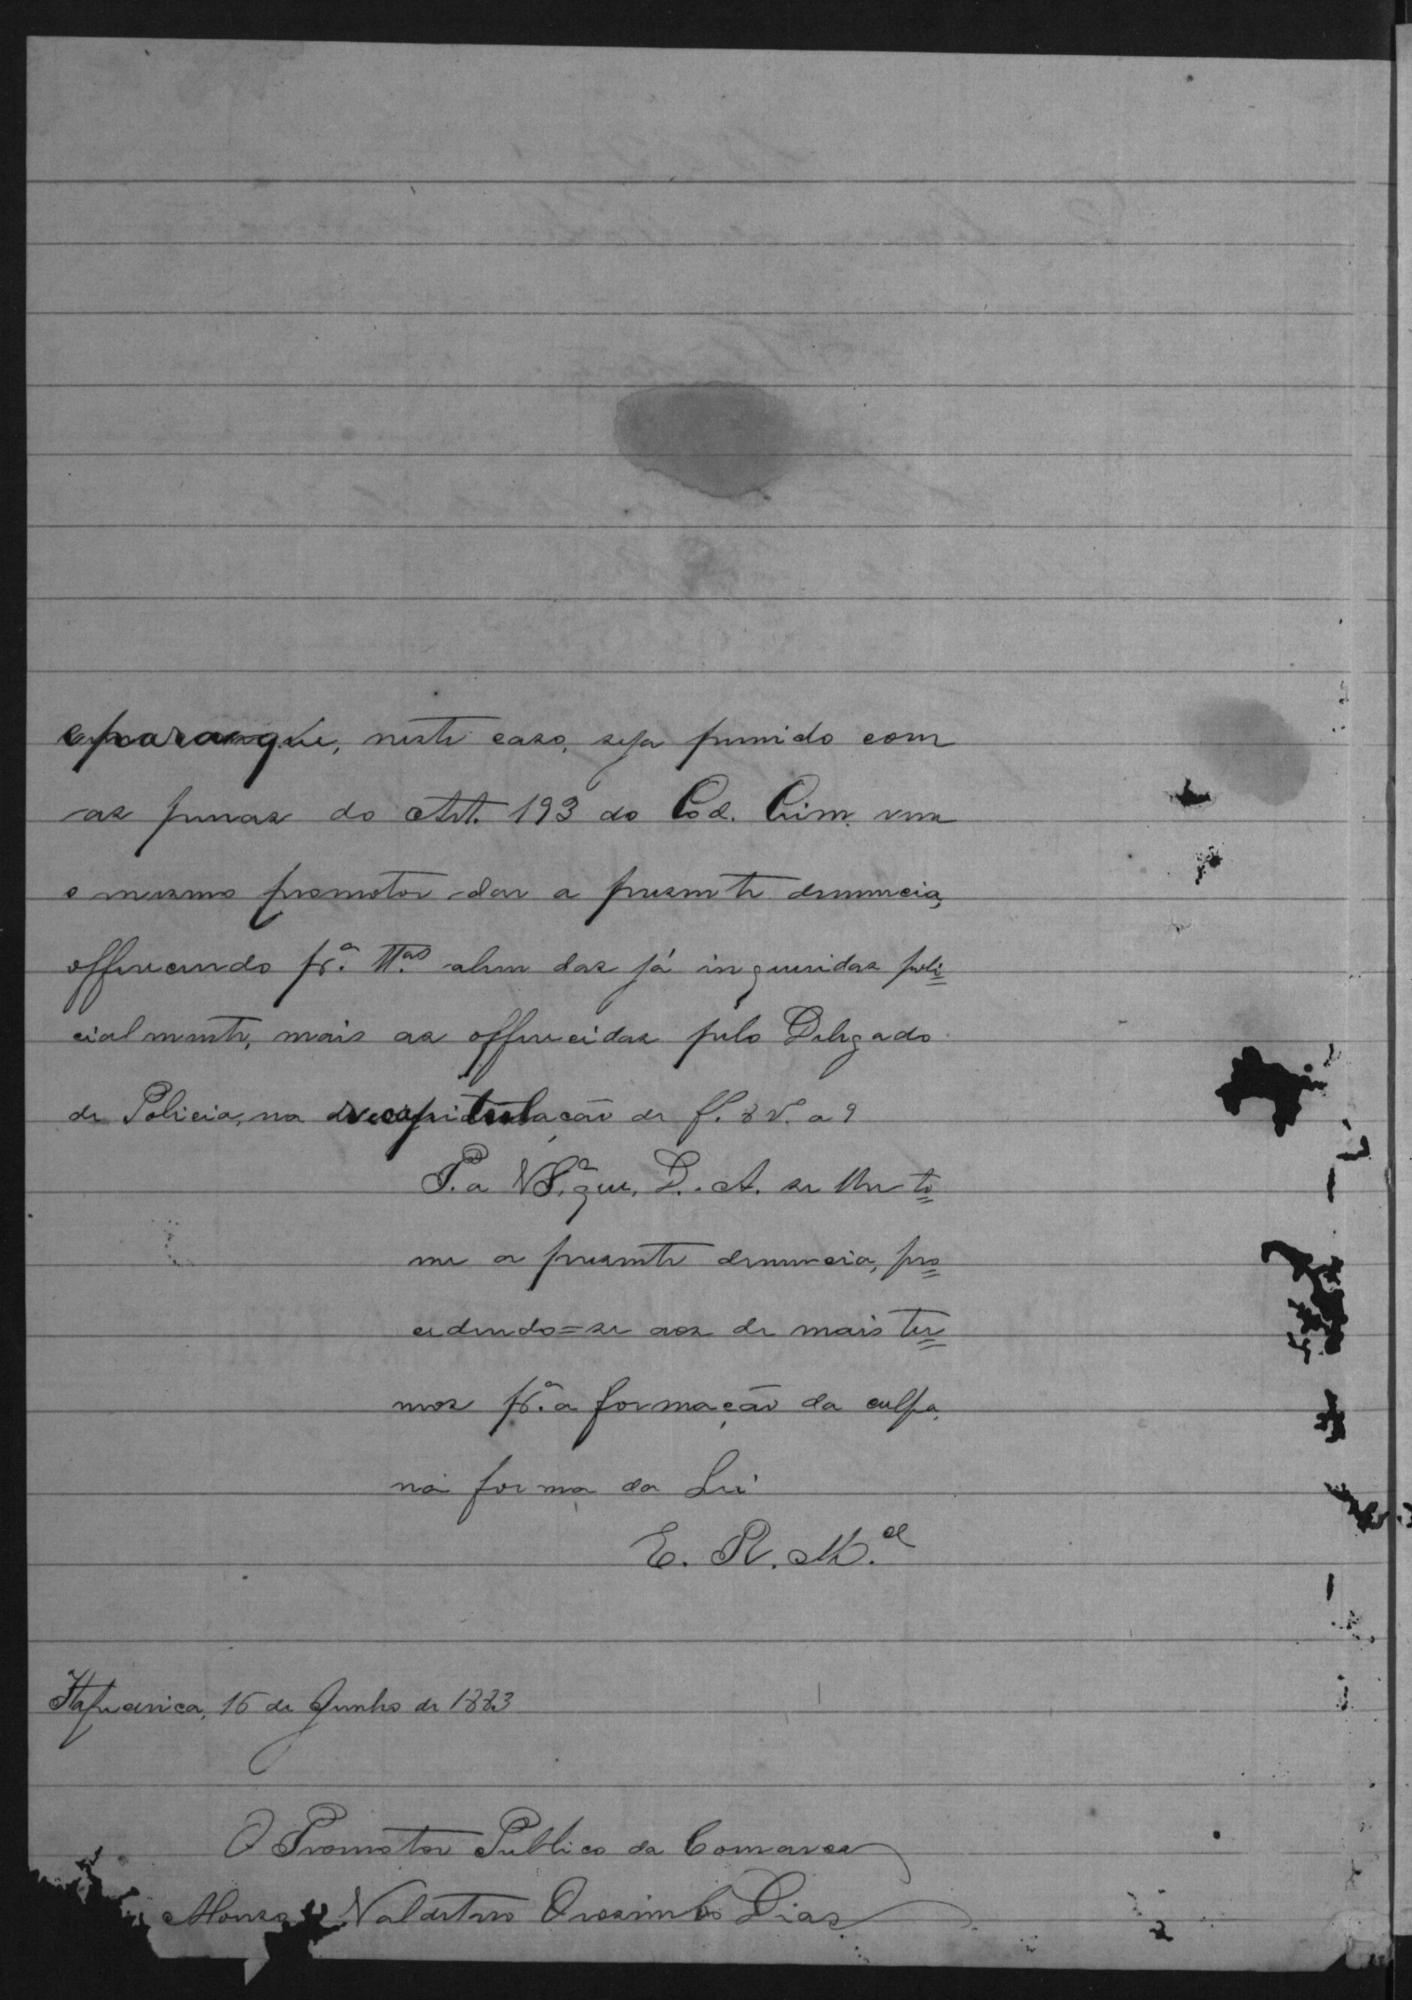 e para que, neste caso, seja punido com
as penas do Art. 193 do Cod. Crim. vem
o mesmo promotor dar a presente denuncia,
offerecendo pr.ª ttas alem das já inqueridas poli=
cialmente, mais as offerecidas pelo Delegado
de Policia, na recapitulação de f. 8 v. a 9
P. a V. S.ª que, D. A. se lhe to=
me a presente denuncia, pro=
cedendo=se aos de mais ter=
mos pr.ª a formação da culpa,
na forma da Lei
E. R. M.cê
Itapecerica, 16 de Junho de 1883
O Promotor Publico da Comarca
Dias